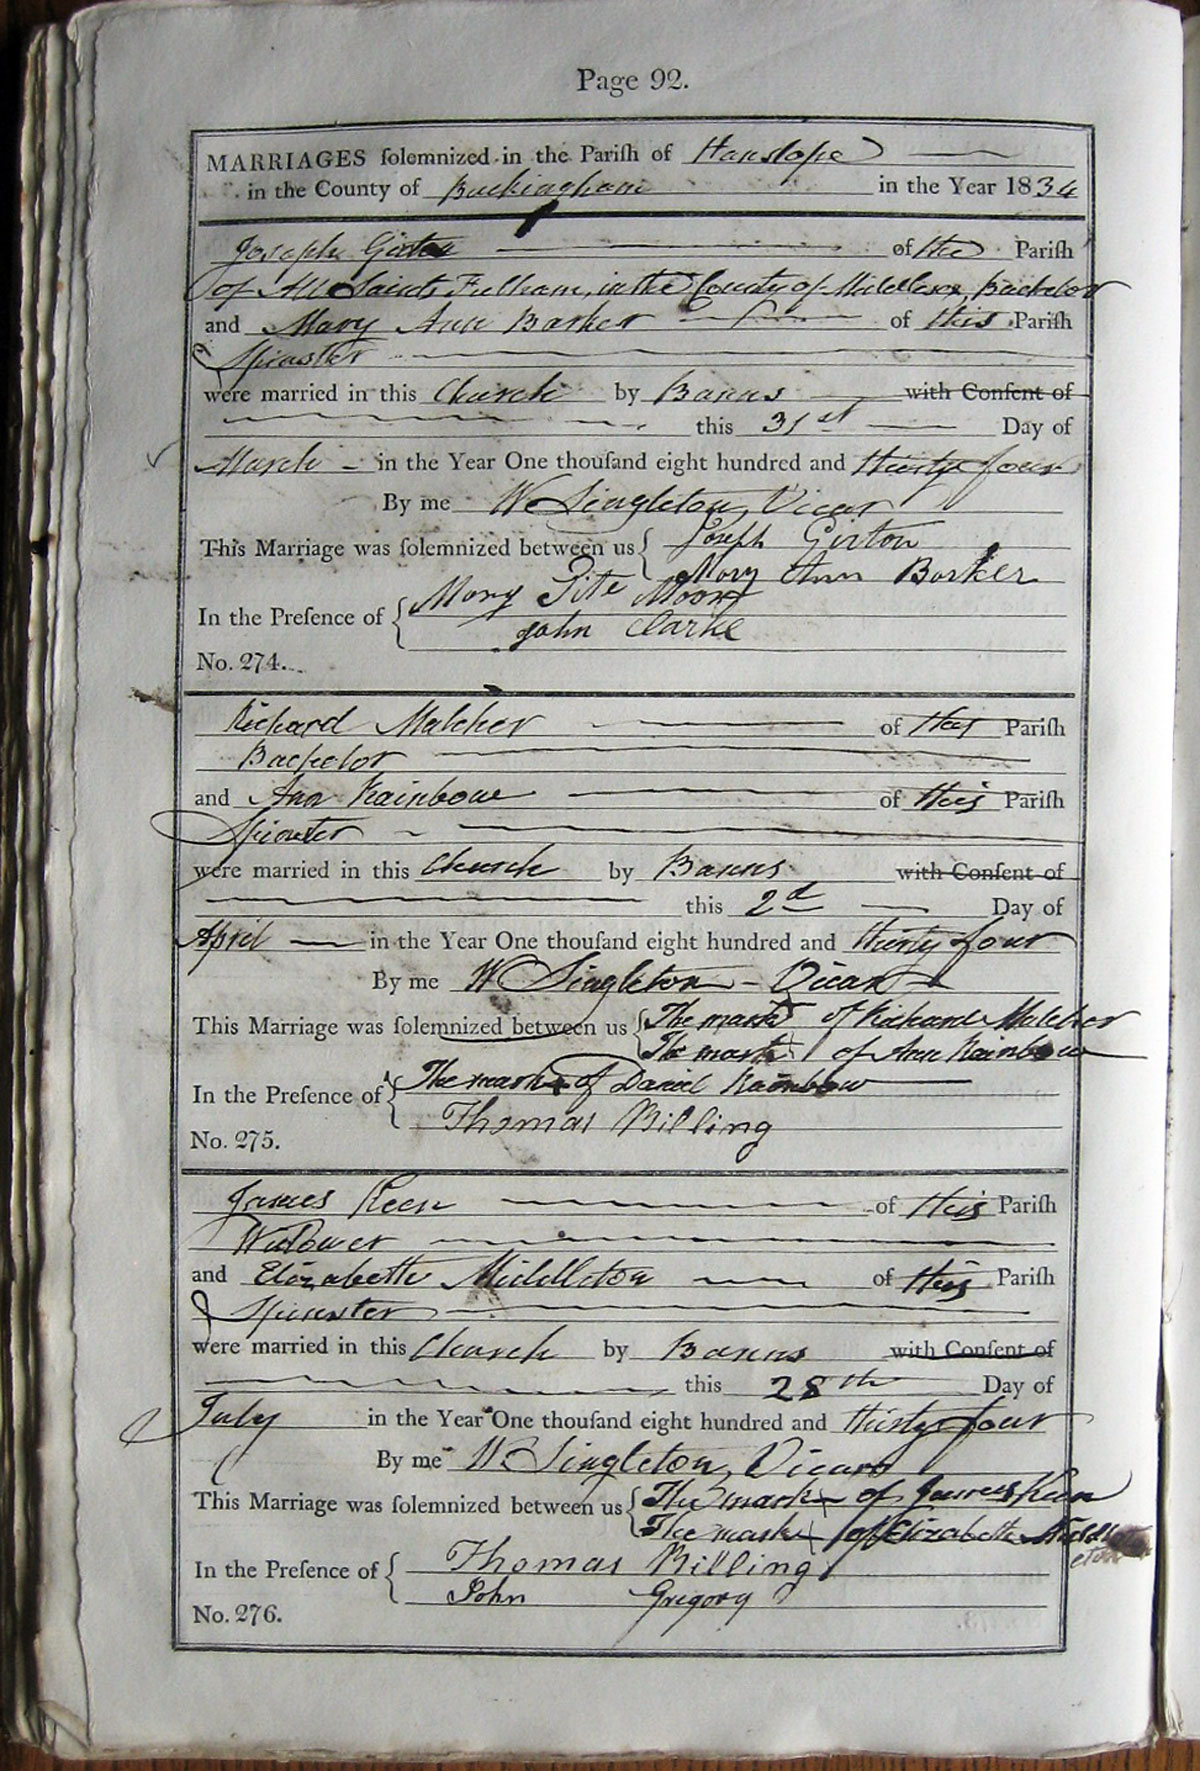 Page 92.
MARRIAGES ſolemnized in the Pariſh of Hanslope
in the County of Buckingham in the Year 1834
Joseph Girton of the Pariſh
of All Saints Fulham, in the County of Middlesex, Bachelor
and Mary Ann Barker of this Pariſh
Spinster
were married in this Church by Banns with Conſent of
this 31st Day of
March in the Year One thouſand eight hundred and thirty four
By me W Singleton, Vicar
This Marriage was ſolemnized between us { Joseph Girton
Mary Ann Barker
In the Preſence of { Mary Moore
John Clarke
No. 274.
Richard Malcher of this Pariſh
Bachelor
and Ann Rainbow of this Pariſh
Spinster
were married in this Church by Banns with Conſent of
this 2d Day of
April in the Year One thouſand eight hundred and thirty four
By me W Singleton - Vicar
This Marriage was ſolemnized between us { The mark of Richard Malcher
The mark of Ann Rainbow
In the Preſence of { The mark of Daniel Rainbow
Thomas Billing
No. 275.
James Keen of this Pariſh
Widower
and Elizabeth Middleton of this Pariſh
Spinster
were married in this Church by Banns with Conſent of
this 28th Day of
July in the Year One thouſand eight hundred and thirty four
By me W Singleton, Vicar
This Marriage was ſolemnized between us { The mark of James Keen
The mark of Elizabeth Middl
eton
In the Preſence of { Thomas Billing
John Gregory
No. 276.